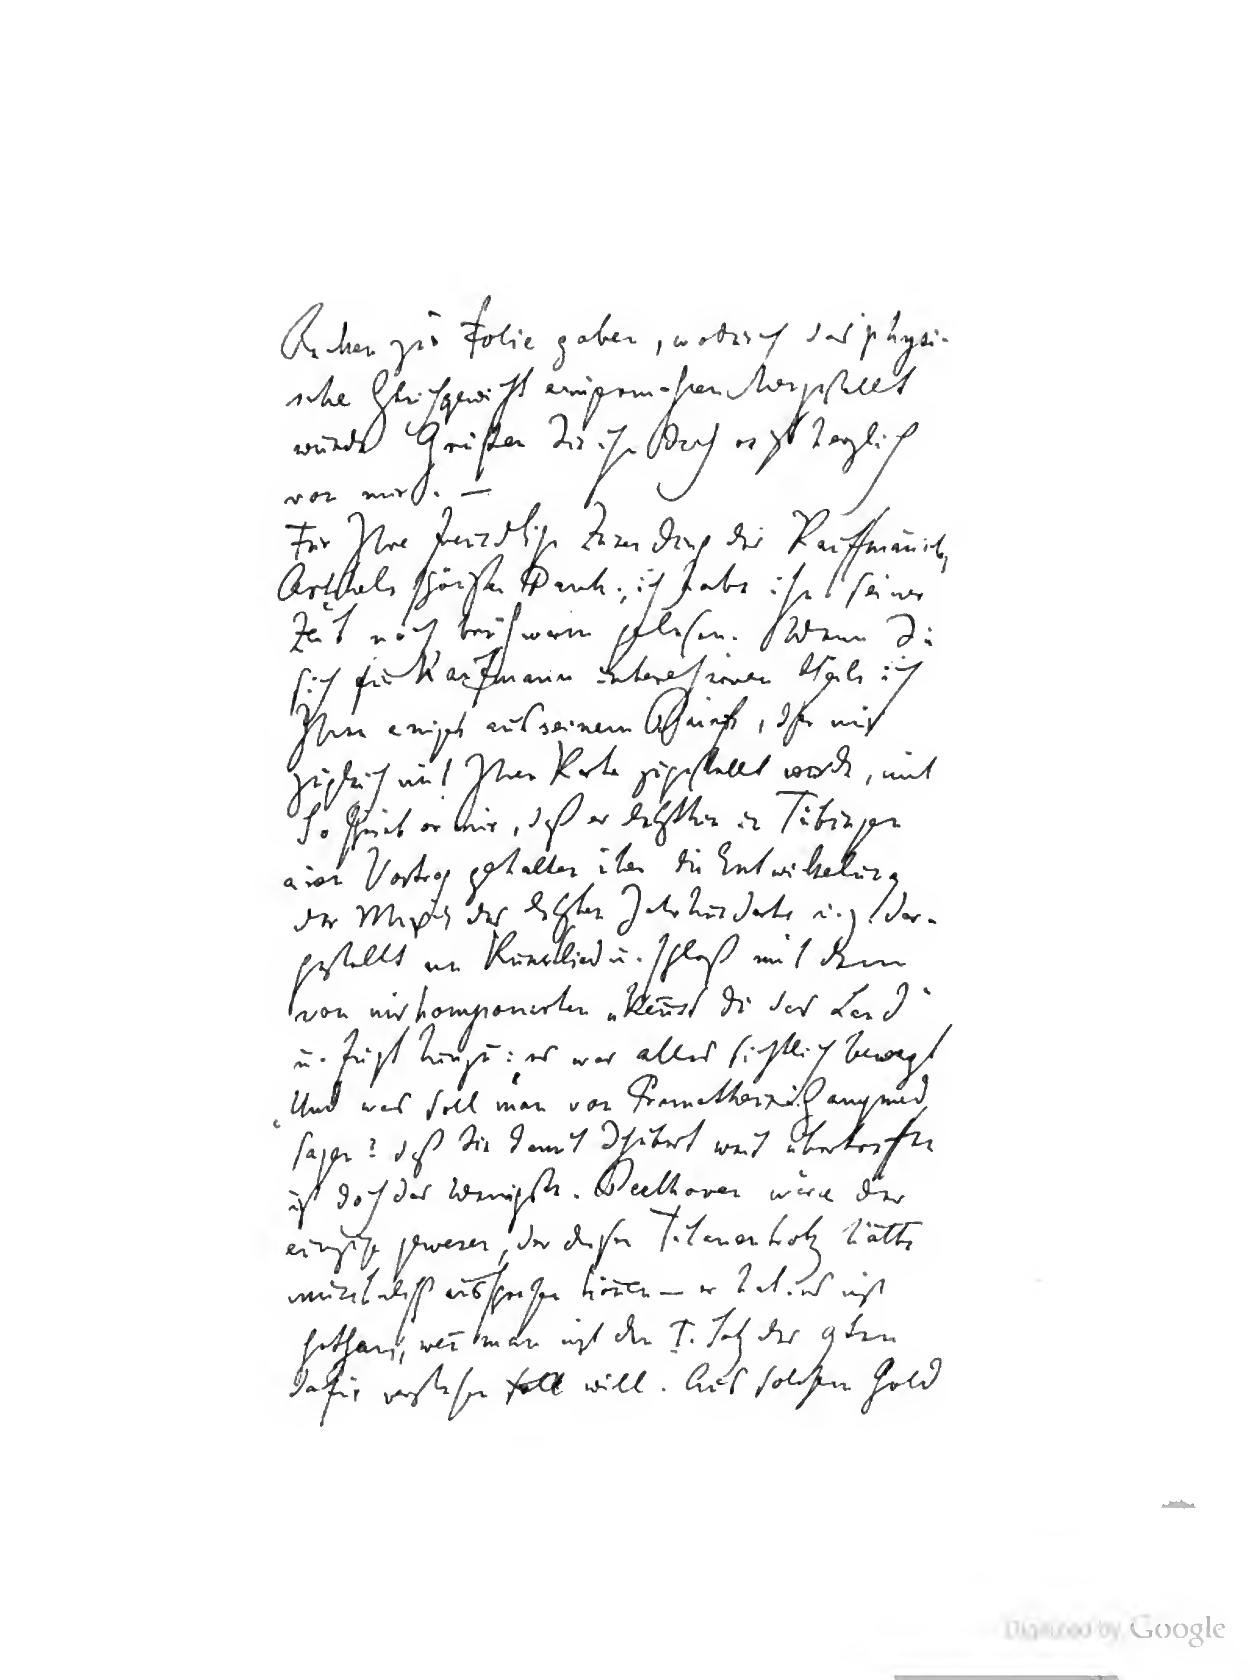 Rücken zur Folie gaben, wodurch das physi-
sche Gleichgewicht einigermassen hergestellt
wurde Grüßen Sie ihn doch herzlich
von mir. —
Für Ihre freundliche Zusendung des Kauffmann'sch,
Artikels schönsten Dank; ich habe ihn seiner
Zeit noch brühwarm gelesen. Wenn Sie
sich für Kauffmann interessieren theile ich
Ihnen einiges aus seinem Briefe, der mir
zugleich mit Ihrer Karte zugestellt wurde, mit
So schrieb er mir, daß er letzthin in Tübingen
einen Vortrag gehalten über die Entwickelung
der Musik des letzten Jahrhunderts u. z. dar-
gestellt am Kunstlied u. schloß mit dem
von mir komponierten „Kennst du das Land"
u. fügt hinzu: es war alles sichtlich bewegt
„Und was soll man von Prometheus u. Ganymed
sagen? daß Sie damit Schubert weit übertroffen
ist doch das Wenigste. Beethoven wäre der
einzige gewesen, der diesen Titanentrotz hätte
musikalisch aussprechen können — er hat es nicht
gethan, wenn man nicht den I. Satz der 9ten
dafür verstehen will. Aus solchem Gold
Digitized by Google